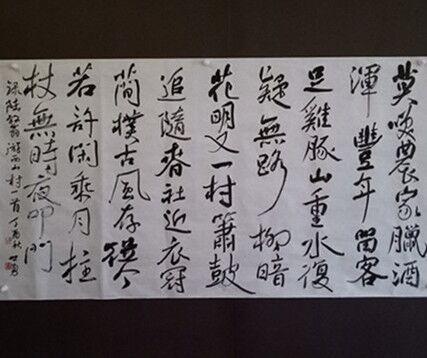 莫笑農家臘酒
渾豐年留客
足雞豚山重水復
疑無路柳暗
花明又一村簫鼓
追隨春社近衣冠
簡樸古風存從今
若許閑乘月拄
杖無時夜叩門
錄陸放翁游西山村一首丁酉秋